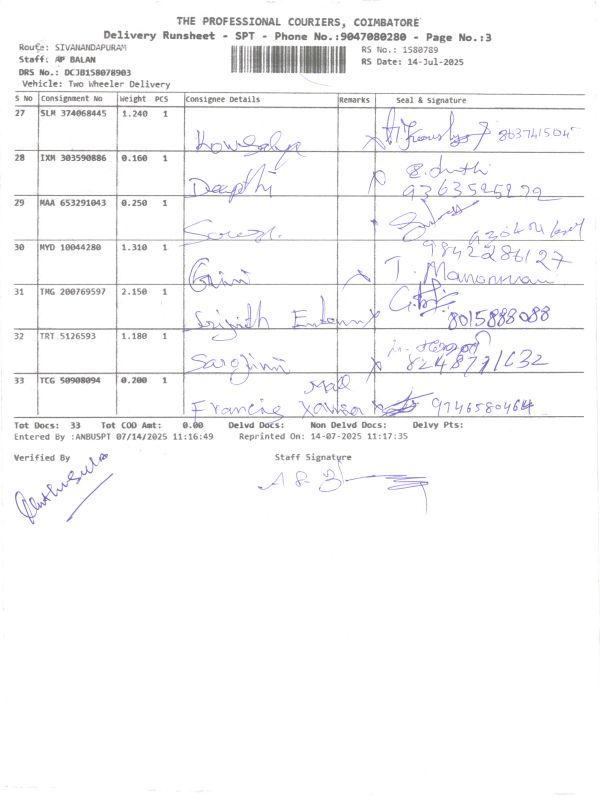 THE PROFESSIONAL COURIERS, COIMBATORE
Delivery Runsheet - SPT - Phone No.:9047080280 - Page No.:3
Route: SIVANANDAPURAM
RS No.: 1580789
Staff: AP BALAN
RS Date: 14-Jul-2025
DRS No.: DCJB158078903
Vehicle: Two Wheeler Delivery
S No Consignment No Weight PCS Consignee Details Remarks Seal & Signature
27 SLM 374068445 1.240 1
28 IXM 303590886 0.160 1 Deepthi
29 MAA 653291043 0.250 1
9842286127
30 MYD 10044280 1.310 1 Giri T. Manonmani
31 TMG 200769597 2.150 1 Srijith
8015888088
32 TRT 5126593 1.180 1 Sarojini
33 TCG 50908094 0.200 1 Francis Xavier
Tot Docs: 33 Tot COD Amt: 0.00 Delvd Docs: Non Delvd Docs: Delvy Pts:
Entered By :ANBUSPT 07/14/2025 11:16:49 Reprinted On: 14-07-2025 11:17:35
Verified By Staff Signature